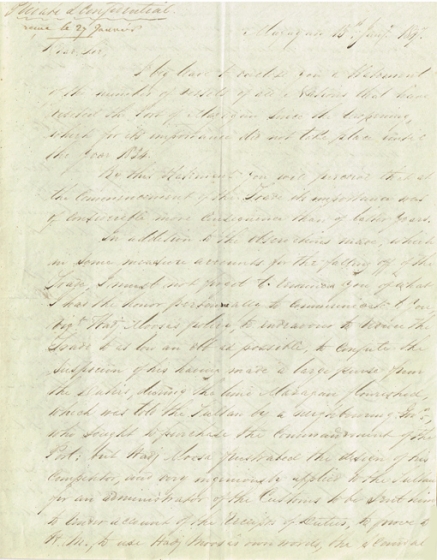 Private & Confidential
reçue le 27 Janvier
Mazagan 15th Jany. 184
Dear Sir,
I beg leave to enclose you a Statement
of the number of vessels of all Nations that have
visited the Port of Mazagan since its reopening,
which for its importance did not take place until
the Year 1834.
By this Statement You will perceive that at
the Commencement of the Trade its importance was
of considerable more Consequence than of later Years.
In addition to the Observations made, which
in some measure accounts for the falling off of the
Trade, I must not forget to remind you of what
I had the honor personally to Communicate to You
Hadj Moosa's policy, to endeavour to reduce the
Trade to as low an ebb as possible, to confute the
Suspicion of his having made a large purse from
the duties, during the time Mazagan flourished,
which was told the Sultan by a neighbouring
who sought to purchase the Commandment of the
Port. but Hadj Moosa frustrated the design of his
Competitor, and very ingeniously applied to the Sultan
for an administrator of the Customs to be sent him
to account of the Receipts of Duties, to prove
to use Hadj Moosa's own words,